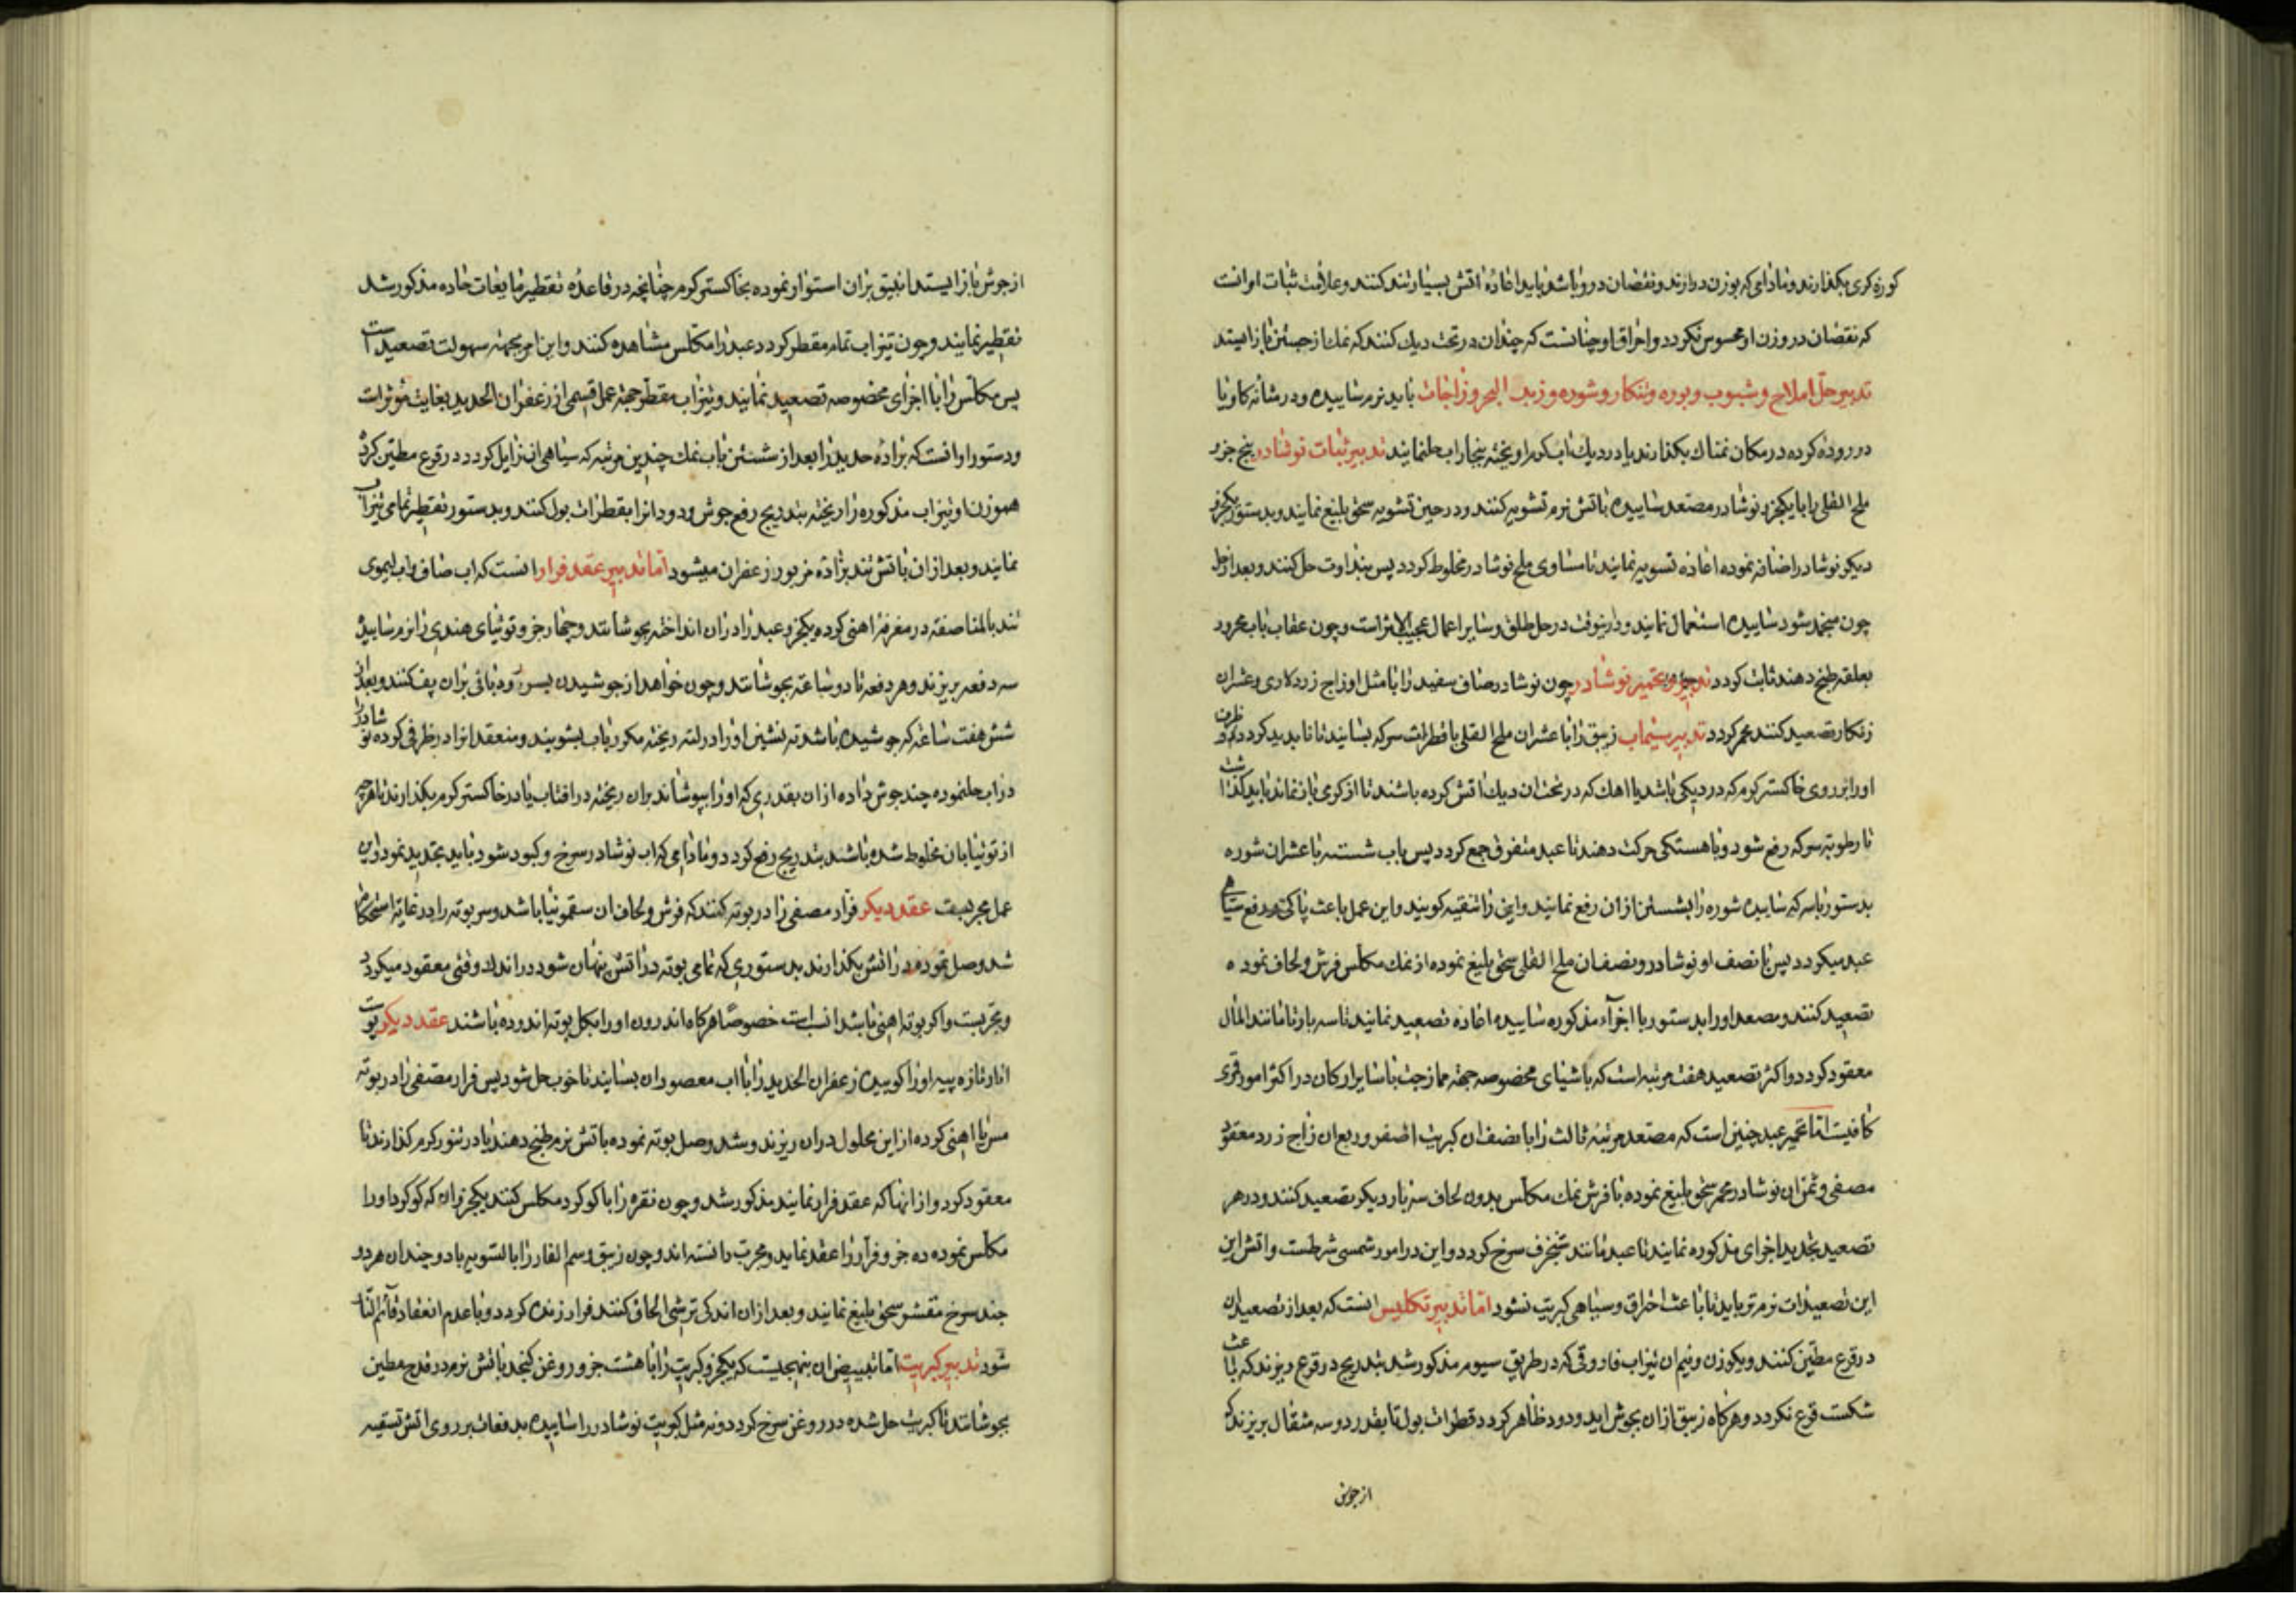 کوزه کری بکذارند و مادای که بوزن در ارند و نقصان در و باشد باید اعادهٔ اتش بسیار تند کنند و علامت ثبات او انست
که نقصان در وزن او محسوس نکردد و احراق او چنانست که چندان در تحت دیک کنند که نمک از جستن باز ایستد
تدبیر حل املاح و شبوب و بوره و تنکار و شوره و زبد البحر و زاجات باید نرم ساییده و در مثانه کاو یا
در روده کرده در مکان نمناک بکذارند یا در دیک اب کرم اویخته ببخار اب حل نمایند تدبیر ثبات نوشادر پنج جزو
ملح القلی را با یکجزو نوشادر مصعد ساییده باتش نرم تشویه کنند و در حین تشویه سحق بلیغ نمایند و بدستور یکجزو
دیکر نوشادر اضافه نموده اعاده تسویه نمایند تا مساوی ملح نوشادر مخلوط کردد پس بنداوت حل کنند و بعد از حل
چون منجمد شود ساییده استعمال نمایند و در اینوقت در حل طلق و سایر اعمال عجیب الاثر است و چون عقاب باب محرود
بعلقه طبخ دهند ثابت کردد تدبیر تحمیر نوشادر چون نوشادر صاف سفید را با مثل او زاج زرد کاری و عشر ان
زنکار تصعید کنند محمر کردد تدبیر سیماب زیبق را با عشر ان ملح القلی با قطرات سرکه بسایند تا ناپدید کردد و ظرف
او را بر روی خاکستر کرم که در دیکی باشد یا اهک که در تحت ان دیک اتش کرده باشند تا از کری باز نماند باید کذاشت
تا رطوبة سرکه رفع شود و باهستکی حرکت دهند تا عبد متفرق جمع کردد پس باب شسته با عشر ان شوره
بدستور با سرکه ساییده شوره را بشستن از ان رفع نمایند و این را تنقیه کویند و این عمل باعث پاکی و رفع سیاهی
عبد میکردد پس با نصف او نوشادر و نصف ان ملح القلی سحق بلیغ نموده از نمک مکلس فرش و لحاف نموده
تصعید کنند و مصعد او را بدستور با اجزآء مذکوره ساییده اعاده تصعید نمایند تا سه بار تا مانند المال
معقود کردد و اکثر تصعید هفت مرتبه است که با شیای مخصوصه جهة ممازجت با سایر ارکان در اکثر امور قمری
کافیست اما تحمیر عبد چنین است که مصعد مرتبه ثالث را با نصف ان کبریت اصفر و ربع ان زاج زرد معقود
مصفی و ثمن ان نوشادر محمر سحق بلیغ نموده با فرش نمک مکلس بدون لحاف سه بار دیکر تصعید کنند و در هر
تصعید تجدید اجزای مذکوره نمایند تا عبد مانند شنجرف سرخ کردد و این در امور شمسی شرطست و اتش این
این تصعیدات نرم تر باید تا باعث احراق و سیاهی کبریت نشود اما تدبیر تکلیس انست که بعد از تصعید ان
در قرع مطین کنند و یکوزن و نیم ان تیزاب فاروقی که در طریق سیوم مذکور شد بتدریج در قرع ریزند که باعث
شکست قرع نکردد و هرکاه زیبق ازان بجوش اید و دود ظاهر کردد قطرات بول تا بقدر دو سه مثقال بریزند که
از جوش
از جوش باز ایستد انبیق بران استوار نموده بخاکستر کرم چنانچه در قاعدهٔ تقطیر مایعات حاده مذکور شد
تقطیر نمایند و چون تیزاب تمام مقطر کردد عبد را مکلس مشاهده کنند و این امر بجهة سهولت تصعید است
پس مکلس را با اجزای مخصوصه تصعید نمایند و تیزاب مقطر جهة عمل قسمی از زعفران الحدید بغایت موثر است
و دستور او انست که برادهٔ حدید را بعد از شستن باب نمک چندین مرتبه که سیاهی ان زایل کردد در قرع مطین کرده
هموزن او تیزاب مذکوره را ریخته بتدریج رفع جوش و دود انرا بقطرات بول کنند و بدستور تقطیر تمامی تیزاب
نمایند و بعد ازان باتش تند برادهٔ مزبور زعفران میشود اما تدبیر عقد فرار انست که اب صاف و اب لیموی
تند بالمناصفه در مغرفهٔ اهنی کرده یکجزو عبد را دران انداخته بجوشانند و چهار جزو توتیای هندی را نرم ساییده
سه دفعه بریزند و هر دفعه تا دو ساعة بجوشانند و چون خواهد از جوشیدن بسر رود باقی بران پف کنند و بعد از
شش هفت ساعة که جوشیده باشد ته نشین او را در لته ریخته مکرر باب بشویند و منعقد انرا در ظرفی کرده نوشادر را
در اب حل نموده چند جوش داده ازان بقدری که او را بپوشاند بران ریخته در افتاب یا در خاکستر کرم بکذارند تا هرچه
از توتیا بان مخلوط شده باشند بتدریج رفع کردد و مادامی که اب نوشادر سرخ و کبود شود باید تجدید نمود و این
عمل مجربست عقد دیکر فرار مصفی را در بوته کنند که فرش و لحاف ان سقمونیا باشد و سر بوته را در غایة استحکام
شد وصل نموده در اتش بکذارند بدستوری که تمامی بوته در اتش پنهان شود در اندک وقتی معقود میکردد
و مجربست و اکر بوته اهنی باشد انسب است خصوصًا هرکاه اندرون او را بکل بوته اندوده باشند عقد دیکر پوست
انار تازه پیه او را کوبیده زعفران الحدید را با اب معصور ان بسایند تا خوب حل شود پس فرار مصفی را در بوته
مس یا اهنی کرده از این محلول دران ریزند و سد وصل بوته نموده باتش نرم طبخ دهند یا در تنور کرم کذارند تا
معقود کردد و از انها که عقد فرار نمایند مذکور شد و چون نقره را با کوکرد مکلس کنند یکجزو ان که کوکرد او را
مکلس نموده ده جزو فرار را عقد نماید و مجرب دانسته اند و چون زیبق و سم الفار را بالسویه با دو چندان هر دو
جند سرخ مقشر سحق بلیغ نمایند و بعد ازان اندکی ترشی الحاف کنند فرار زنده کردد و با عدم انعقاد قائم النار
شود تدبیر کبریت اما تبییض ان بنهجیست که یکجزو کبریت را با هشت جزو روغن کنجد باتش نرم در قدح مطین
بجوشانند تا کبریت حل شده در روغن سرخ کردد و نه مثل کبریت نوشادر را ساییده بدفعات بر روی اتش تسقیه